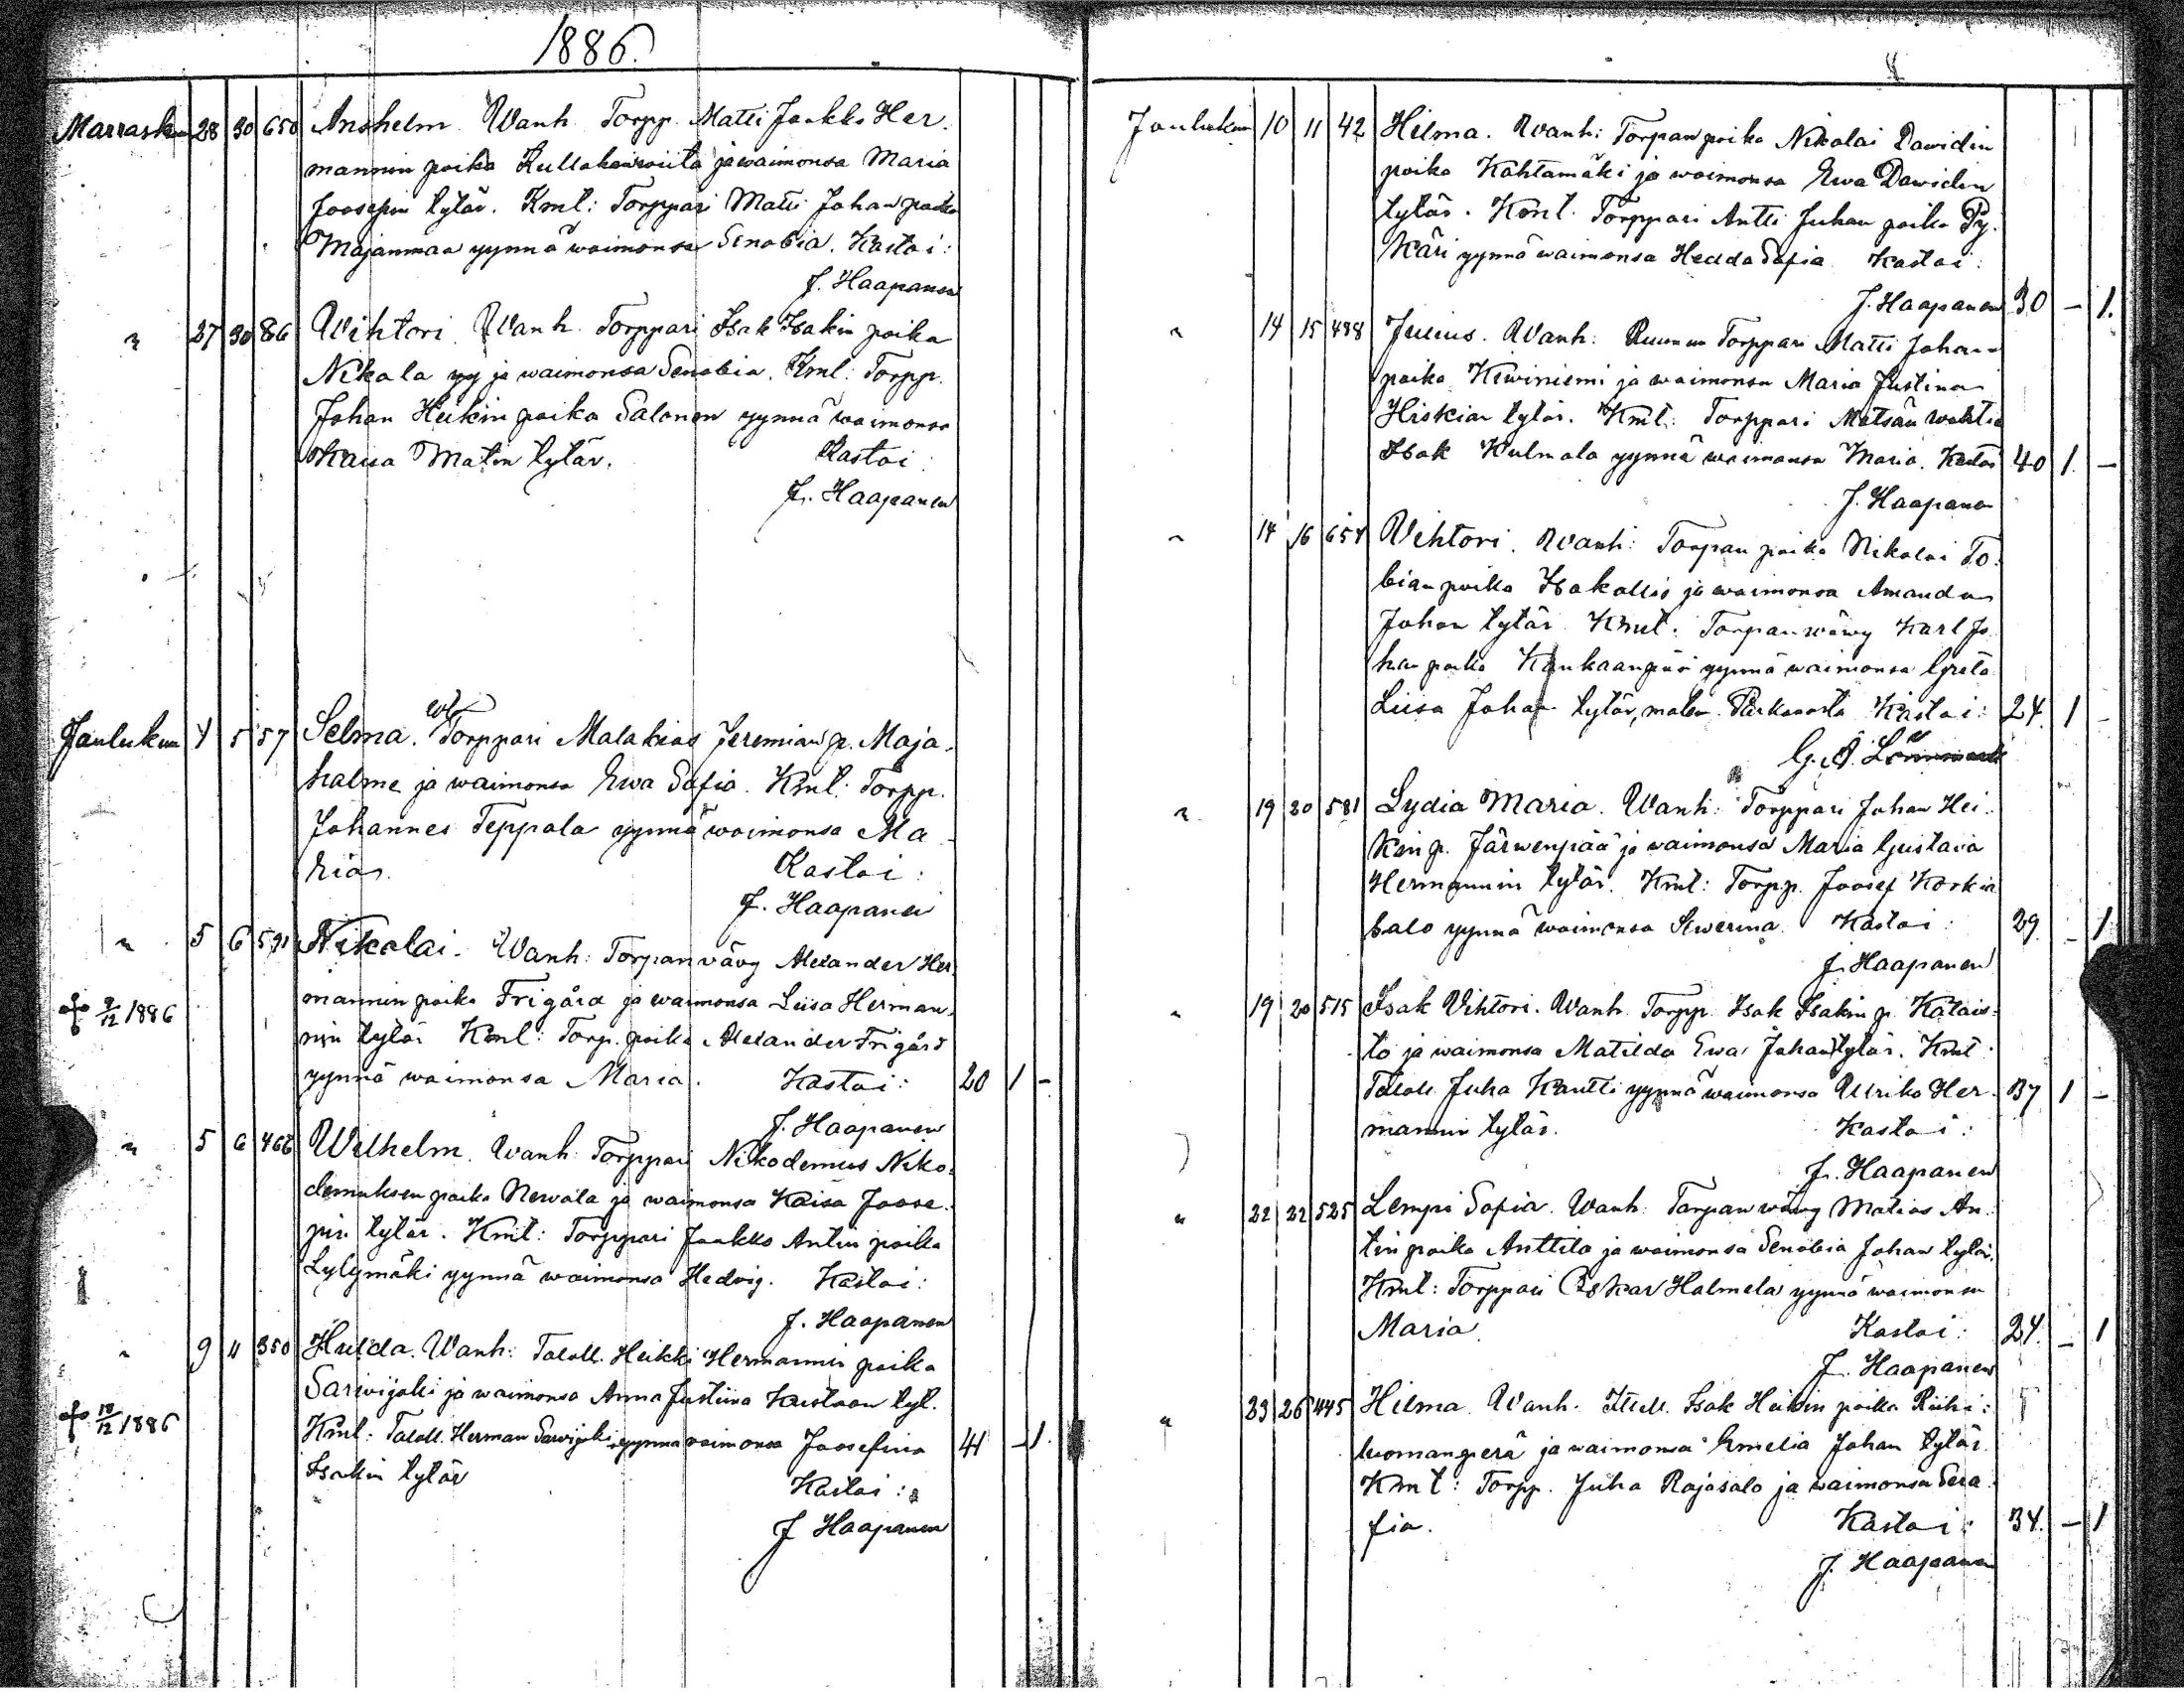 1886.
Marrask. 28 30 650 Anshelm. Wanh. Torpp. Matti Jaakko Her-
mannin poika Kullakanwiita ja waimonsa Maria
Joosepin tytär. Kml: Torppari Matti Johan poika
Majanmaa yynnä waimonsa Senobia. Kastoi:
J. Haapanen
" 27 30 86 Wihtori. Wanh. Torppari Isak Isakin poika
Nikola yy ja waimonsa Senobia. Kml: Torpp.
Johan Heikin poika Salonen yynnä waimonsa
Kaisa Matin tytär. Kastoi
J. Haapanen
Joulukuu 4 5 57 Selma. Wh Torppari Malakias Jeremian p. Maja-
halme ja waimonsa Ewa Sofia. Kml: Torpp.
Johannes Teppala yynnä waimonsa Ma-
rian. Kastoi:
J. Haapanen
" 5 6 591 Nikolai. Wanh: Torpanvävy Alexander Her-
mannin poika Frigård ja waimonsa Liisa Herman-
nin tytär Kml: Torp. poika Alexander Frigård
yynnä waimonsa Maria. Kastoi: 20 1 -
J. Haapanen
+ 9/12 1886
" 5 6 466 Wilhelm. Wanh: Torppari Nikodemus Niko-
demuksen poika Newala ja waimonsa Kaisa Joose-
pin tytär. Kmt: Torppari Jaakko Antin poika
Lylymäki yynnä waimonsa Hedvig. Kastoi:
J. Haapanen
" 9 11 350 Hulda. Wanh: Taloll. Heikki Hermannin poika
Sarwijoki ja waimonsa Anna Justiina Kustaan tyt.
Kml: Taloll. Herman Sarwijoki yynnä waimonsa Joosefina 41 - 1
Isakin tytär Kastoi:
J Haapanen
+ 18/12 1886
Joulukuu 10 11 42 Hilma. Wanh: Torpan poika Nikolai Dawidin
poika Kahtamäki ja waimonsa Ewa Dawidin
tytär. Kml. Torppari Antti Juhan poika Py-
käri yynnä waimonsa Hedda Sofia Kastoi:
J. Haapanen 30 - 1.
" 14 15 488 Julius. Wanh: Ruunun Torppari Matti Johan
poika Kiwiniemi ja waimonsa Maria Justina
Hiskian tytär. Kml: Torppari Metsän wahti
Isak Kulmala yynnä waimonsa Maria. Kastoi 40 1. -
J. Haapanen
" 14 16 654 Vihtori. Wanh: Torpan poika Nikolai To-
bian poika Isokallio ja waimonsa Amanda
Johan tytär Kmt: Torpanwäwy Karl Jo-
han poika Kankaanpää yynnä waimonsa Greta
Liisa Johan tytär, molem. Parkanosta Kastoi: 24. 1 -
G. A.
" 19 20 581 Lydia Maria. Wanh: Torppari Johan Hei-
kin p. Järwenpää ja waimonsa Maria Gustava
Hermannin tytär. Kmt: Torpp. Joosef Korkia
salo yynnä waimonsa Sewerina. Kastoi: 29. - 1
J. Haapanen
" 19 20 515 Isak Vihtori. Wanh. Torpp. Isak Isakin p. Katais-
to ja waimonsa Matilda Ewa Johan tytär. Kmt:
Taloll. Juha Kantti yynnä waimonsa Ulrika Her- 37 1 -
mannin tytär. Kastoi:
J. Haapanen
" 22 22 525 Lempi Sofia. Wanh: Torpanwäwy Matias An-
tin poika Anttila ja waimonsa Senobia Johan tytär.
Kmt: Torppari Oskar Halmela yynnä waimonsa
Maria. Kastoi: 24. - 1
J. Haapanen
" 23 26 445 Hilma. Wanh. Itsell. Isak Heikin poika Riihi-
luomanperä ja waimonsa Emelia Johan tytär.
Kmt: Torpp. Juha Rajasalo ja waimonsa Sera-
fia. Kastoi: 34. - 1
J. Haapanen